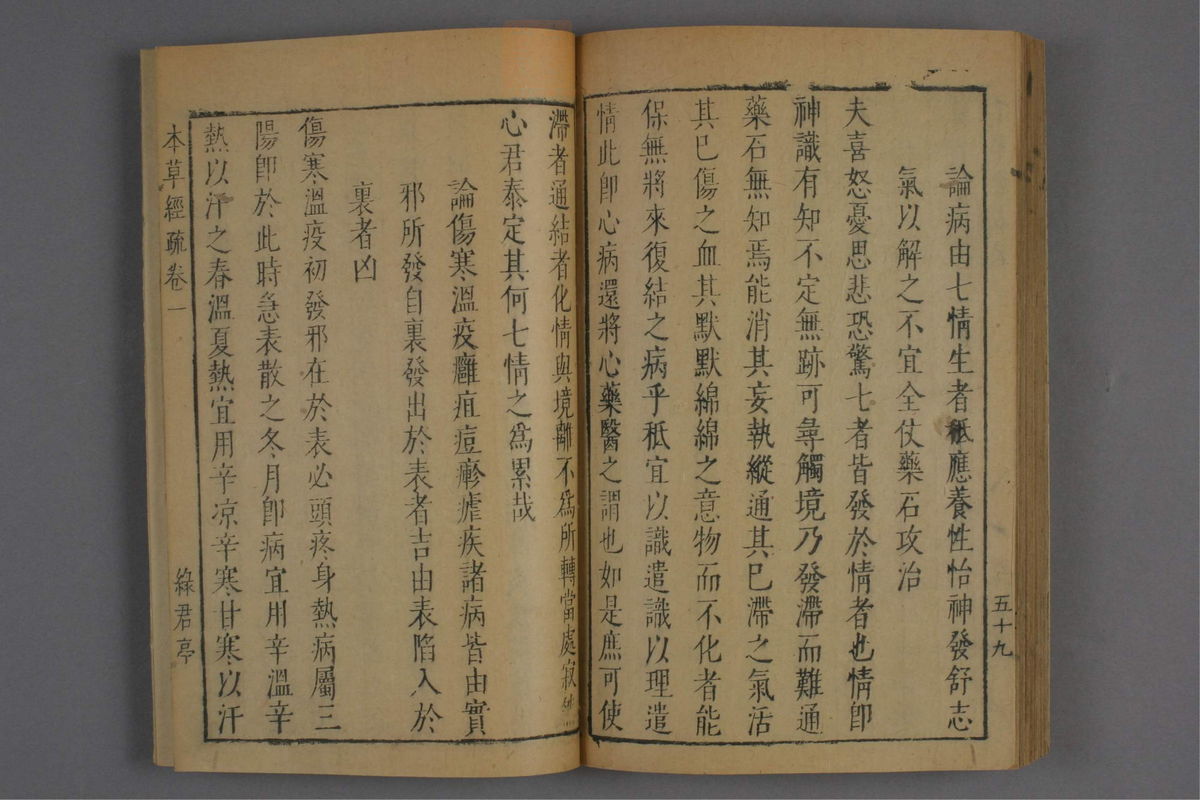 五十九
論病由七情生者秪應養性怡神發舒志
氣以解之不宜全仗藥石攻治
夫喜怒憂思悲恐驚七者皆發於情者也情卽
神識有知不定無跡可尋觸境乃發滯而難通
藥石無知焉能消其妄執縱通其已滯之氣活
其已傷之血其默默綿綿之意物而不化者能
保無將來復結之病乎秪宜以識遣識以理遣
情此卽心病還將心藥醫之謂也如是庶可使
滯者通結者化情與境離不爲所轉當處寂然
心君泰定其何七情之爲累哉
論傷寒溫疫癰疽痘瘮瘧疾諸病皆由實
邪所發自裏發出於表者吉由表陷入於
裏者凶
傷寒溫疫初發邪在於表必頭疼身熱病屬三
陽卽於此時急表散之冬月卽病宜用辛溫辛
熱以汗之春溫夏熱宜用辛凉辛寒甘寒以汗
本草經疏卷一
綠君亭